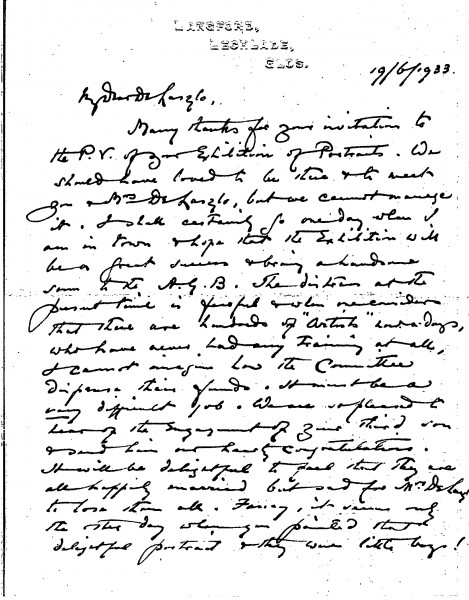 LANGFORD,
LECHLADE,
GLOS.
19/6/1933.
My dear De Laszlo,
Many thanks for your invitation to
the P.V. of your Exhibition of Portraits. We
should have loved to be there & to meet
you & Mrs De Laszlo, but we cannot manage
it. I shall certainly go one day when I
am in town & hope that the Exhibition will
be a great success & bring a handsome
sum to the A.G.B. The distress at the
present time is fearful & when one considers
that there are hundreds of "Artists" now-a-days,
who have never had any training at all,
I cannot imagine how the Committee
dispense their funds. It must be a
very difficult job. We are so pleased to
hear of the Engagement of your third son
& send him our hearty congratulations.
It will be delightful to feel that they are
all happily married but sad for Mrs De Laszlo
to lose them all. Fancy, it seems only
the other day when you painted that
delightful portrait & they were little boys!